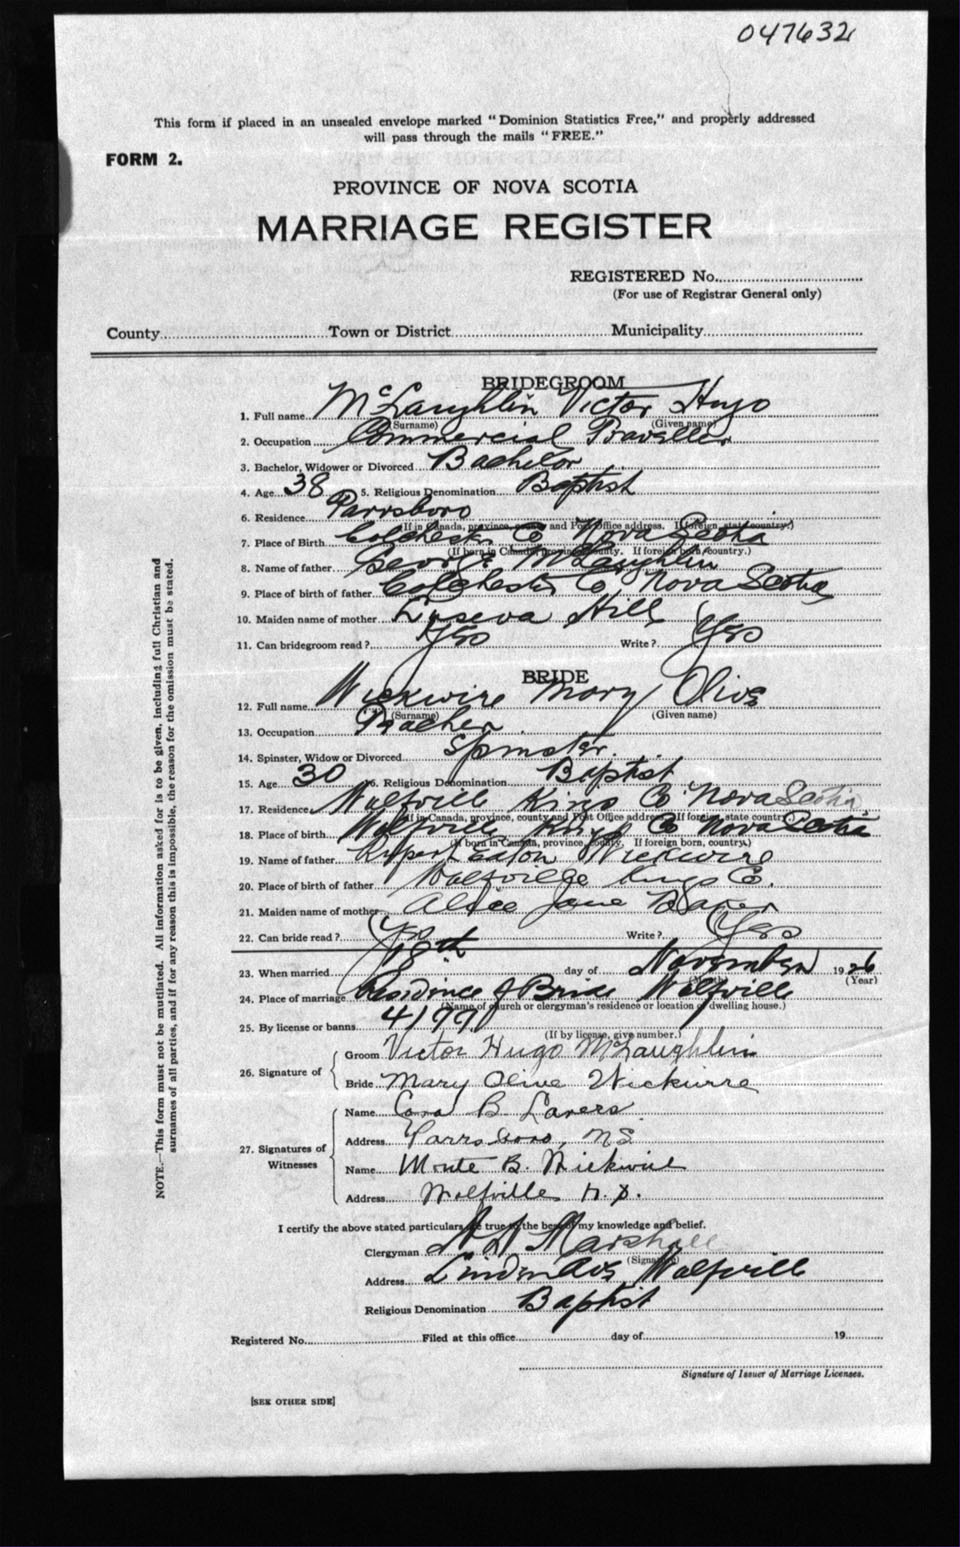 047632
This form if placed in an unsealed envelope marked "Dominion Statistics Free," and properly addressed
will pass through the mails "FREE."
FORM 2.
PROVINCE OF NOVA SCOTIA
MARRIAGE REGISTER
REGISTERED No.
(For use of Registrar General only)
County Town or District Municipality
BRIDEGROOM
1. Full name McLaughlin Victor Hugo
(Surname) (Given name)
2. Occupation Commercial Traveller
3. Bachelor, Widower or Divorced Bachelor
4. Age 38 5. Religious Denomination Baptist
6. Residence Parrsboro
(If in Canada, province, county and Post Office address. If foreign, state country.)
7. Place of Birth Colchester Co Nova Scotia
(If born in Canada, province, county. If foreign born, country.)
8. Name of father George McLaughlin
9. Place of birth of father Colchester Co Nova Scotia
10. Maiden name of mother Hill
11. Can bridegroom read? Yes Write? Yes
BRIDE
12. Full name Wickwire Mary Olive
(Surname) (Given name)
13. Occupation Teacher
14. Spinster, Widow or Divorced Spinster.
15. Age 30 16. Religious Denomination Baptist
17. Residence Wolfville Kings Co Nova Scotia
(If in Canada, province, county and Post Office address. If foreign, state country.)
18. Place of birth Wolfville Kings Co Nova Scotia
(If born in Canada, province, county. If foreign born, country.)
19. Name of father Rupert Eaton Wickwire
20. Place of birth of father Wolfville Kings Co.
21. Maiden name of mother Alice Jane Baker
22. Can bride read? Yes Write? Yes
23. When married 18th day of November 1926
(Month) (Year)
24. Place of marriage Residence of Bride Wolfville
(Name of church or clergyman's residence or location of dwelling house.)
25. By license or banns 41991
(If by license, give number.)
26. Signature of
Groom Victor Hugo McLaughlin
Bride Mary Olive Wickwire
27. Signatures of Witnesses
Name B. Lavers.
Address Parrsboro, NS
Name B. Wickwire
Address Wolfville N.S.
I certify the above stated particulars are true to the best of my knowledge and belief.
Clergyman Marshall
(Signature)
Address Linden Ave Wolfville
Religious Denomination Baptist
Registered No. Filed at this office day of 19
Signature of Issuer of Marriage Licenses.
[SEE OTHER SIDE]
NOTE.—This form must not be mutilated. All information asked for is to be given, including full Christian and
surnames of all parties, and if for any reason this is impossible, the reason for the omission must be stated.